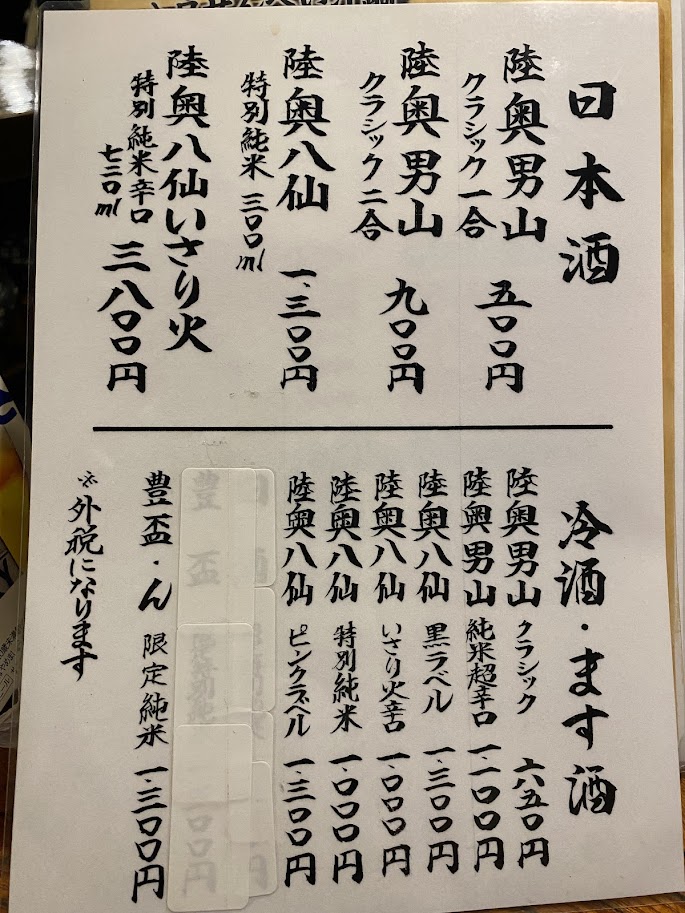 日本酒
陸奥男山
クラシック一合
五〇〇円
陸奥男山
クラシック二合
九〇〇円
陸奥八仙
特別純米 三〇〇ml
一、三〇〇円
陸奥八仙いさり火
特別純米辛口
七二〇ml
三、八〇〇円
冷酒・ます酒
陸奥男山 クラシック 六五〇円
陸奥男山 純米超辛口 一、一〇〇円
陸奥八仙 黒ラベル 一、三〇〇円
陸奥八仙 いさり火辛口 一、〇〇〇円
陸奥八仙 特別純米 一、〇〇〇円
陸奥八仙 ピンクラベル 一、三〇〇円
豊盃
豊盃・ん 限定純米 一、三〇〇円
※外税になります